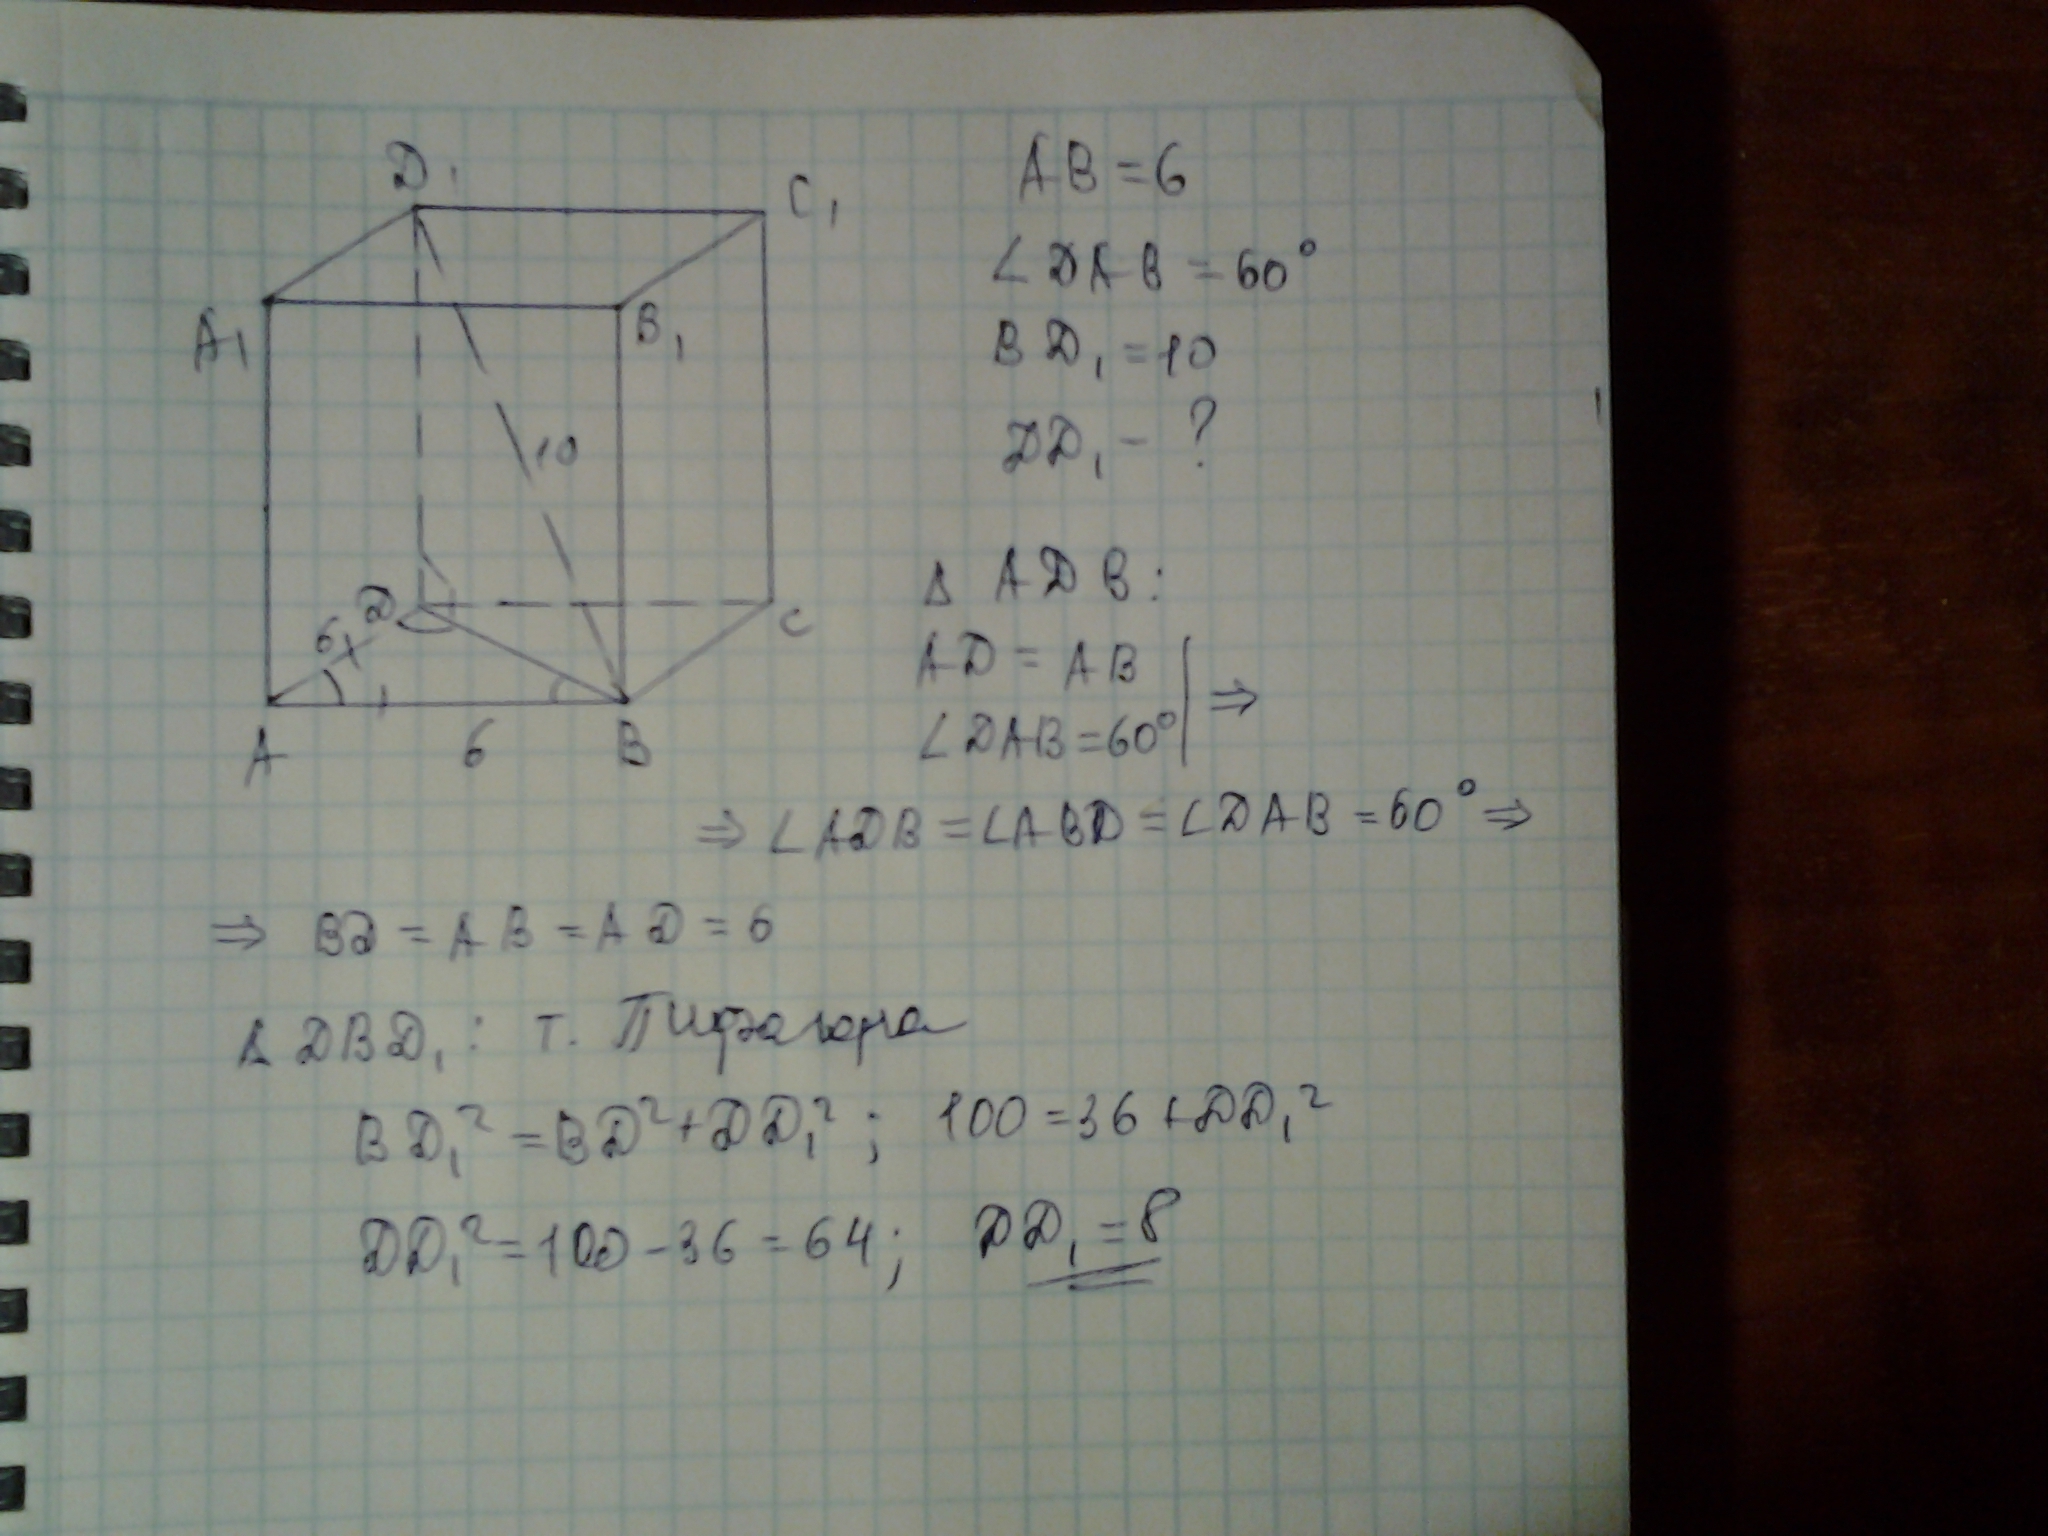 D₁
C₁
A₁
B₁
10
D
6
C
A
6
B
AB = 6
∠DAB = 60°
BD₁ = 10
DD₁ - ?
Δ ADB:
AD = AB
∠DAB = 60° ⇒
⇒ ∠ADB = ∠ABD = ∠DAB = 60° ⇒
⇒ BD = AB = AD = 6
Δ DBD₁: т. Пифагора
BD₁² = BD² + DD₁²; 100 = 36 + DD₁²
DD₁² = 100 - 36 = 64; DD₁ = 8